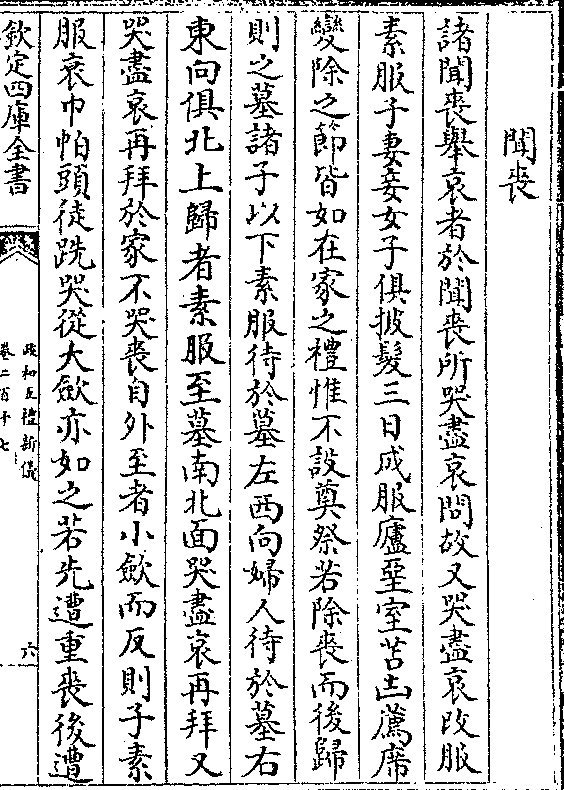 聞喪
諸聞喪舉哀者於聞喪所哭盡哀問故又哭盡哀改服
素服子妻妾女子俱披髮三日成服廬堊室苫凷薦席
變除之節皆如在家之禮惟不設奠祭若除喪而後歸
則之墓諸子以下素服待於墓左西向婦人待於墓右
東向俱北上歸者素服至墓南北面哭盡哀再拜又
哭盡哀再拜於家不哭喪自外至者小歛而反則子素
服衰巾帕頭徒跣哭從大歛亦如之若先遭重喪後遭
欽定四庫全書
政和五禮新儀
卷二百十七
六